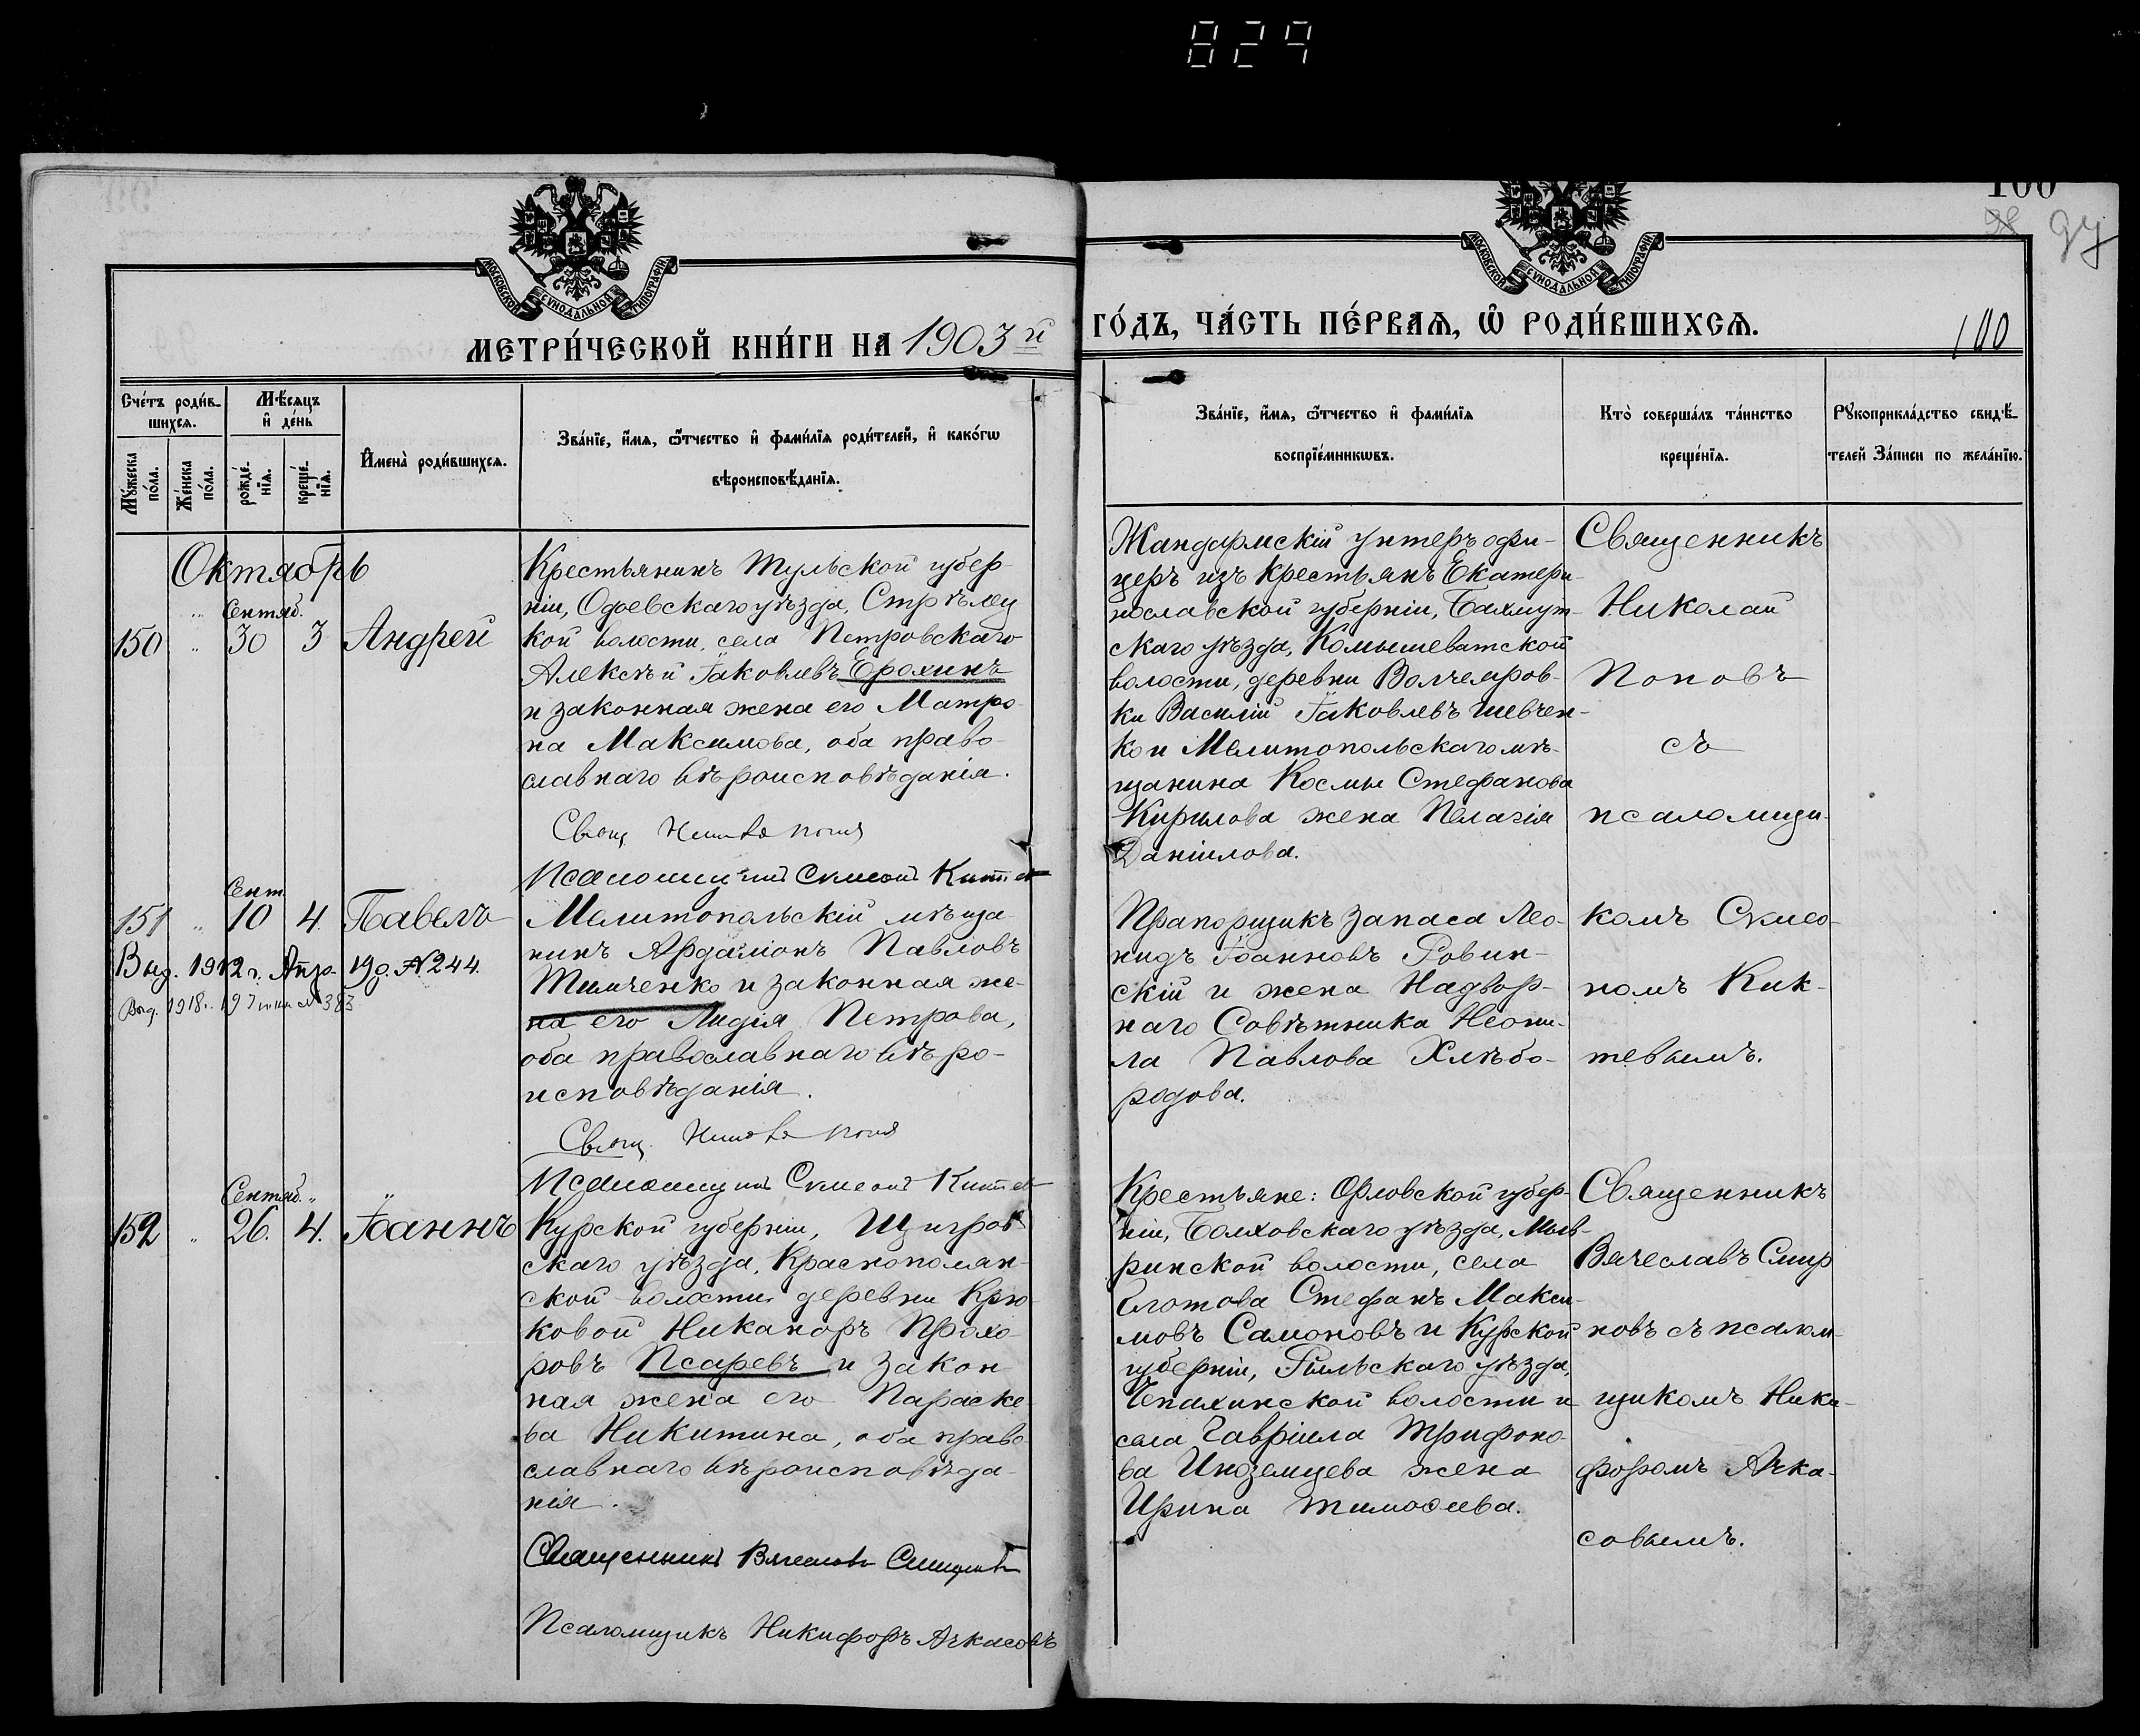 829
100
98 97
МОСКОВСКОЙ СѴНОДАЛЬНОЙ ТИПОГРАФІИ.
МОСКОВСКОЙ СѴНОДАЛЬНОЙ ТИПОГРАФІИ.
МЕТРИ́ЧЕСКОЙ КНИ́ГИ НА 1903й
ГО́ДЪ, ЧА́СТЬ ПЕ́РВАѦ, Ѽ РОДИ́ВШИХСѦ.
100
Сче́тъ роди́в-
шихсѧ.
Мѣ́сѧцъ
и҆ де́нь
Мꙋ́жеска
по́ла.
Же́нска
по́ла.
рожде́-
нїѧ.
креще́-
нїѧ.
И҆мена̀ роди́вшихсѧ.
Зва́нїе, и҆́мѧ, ѻ҆́тчество и҆ фами́лїѧ роди́телей, и҆ како́гѡ
вѣроисповѣ́данїѧ.
Зва́нїе, и҆́мѧ, ѻ҆́тчество и҆ фами́лїѧ
воспрїе́мникѡвъ.
Кто̀ соверша́лъ та́инство
креще́нїѧ.
Рꙋкоприкла́дство свидѣ́-
телей За́писи по жела́нїю.
Октябрь
Сентяб.
150 " 30 3 Андрей
Крестьянинъ Тульской губер-
ніи, Одоевскаго уѣзда, Стрѣлец
кой волости, села Петровскаго
Алексѣй Іаковлевъ Ерохинъ
и законная жена его Матро-
на Максимова, оба право-
славнаго вѣроисповѣданія.
Свящ.
Псаломщикъ Симеонъ
Жандармскій унтеръ офи-
церъ изъ крестьянъ Екатери-
нославской губерніи, Бахмут-
скаго уѣзда, Комышеватской
волости, деревни
ки Василій Іаковлевъ Шевчен-
ко и Мелитопольскаго мѣ-
щанина Космы Стефанова
Кирилова жена Пелагія
Даніилова.
Священникъ
Николай
Поповъ
съ
псаломщи-
Сент.
151 " 10 4. Павелъ
Выд. 1912 г. Апр. 19 д. № 244.
Выд. 1918 г. 19 383
Мелитопольскій мѣща-
нинъ Ардаліонъ Павловъ
Тимченко и законная же-
на его Лидія Петрова,
оба православнаго вѣро-
исповѣданія.
Свящ.
Псаломщикъ Симеонъ
Прапорщикъ запаса Лео-
нидъ Іоанновъ Ровин-
скій и жена Надвор-
наго Совѣтника Неони-
ла Павлова Хлѣбо-
родова.
комъ Симео-
номъ Кик-
тевымъ.
Сентяб. "
152 " 26. 4. Іоаннъ
Курской губерніи, Щигров
скаго уѣзда, Краснополян-
ской волости, деревни Крю-
ковой Никаноръ Прохо-
ровъ Псаревъ и закон-
ная жена его Параске-
ва Никитина, оба право-
славнаго вѣроисповѣда-
нія.
Священникъ Вячеславъ Смирновъ
Псаломщикъ Никифоръ Ачкасовъ
Крестьяне: Орловской губер-
ніи, Болховскаго уѣзда,
ринской волости, села
Стефанъ Макси-
мовъ Самоновъ и Курской
губерніи, Рыльскаго уѣзда,
волости и
села Гавріила Трифоно-
ва Иноземцева жена
Ирина Тимоѳеева.
Священникъ
Вячеславъ Смир
новъ съ псалом-
щикомъ Ники-
форомъ Ачка-
совымъ.